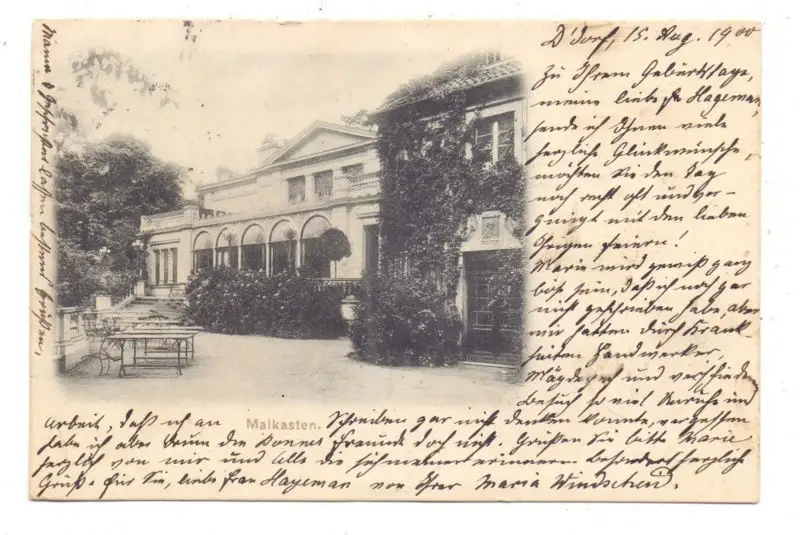 D'dorf, 15. Aug. 1900
Zu Ihrem Geburtstage,
meine liebe Frau Hageman,
sende ich Ihnen viele
herzliche Glückwünsche,
möchten Sie den Tag
noch recht oft und ver-
gnügt mit den lieben
Ihrigen feiern!
Marie wird gewiß ganz
bös sein, daß ich noch gar
nicht geschrieben habe, aber
wir hatten durch Krank
heiten Handwerker,
und verschieden
Besuch so viel Unruhe und
Arbeit, daß ich an Schreiben gar nicht denken konnte, vergessen
Malkasten.
habe ich aber drum die Bonner Freunde doch nicht. Grüßen Sie bitte Marie
herzlich von mir und Alle die sich meiner erinnern. Besonders herzliche
Grüße für Sie, liebe Frau Hageman von Ihrer Maria Windscheid.
Mama & Geschwister lassen bestens grüßen,